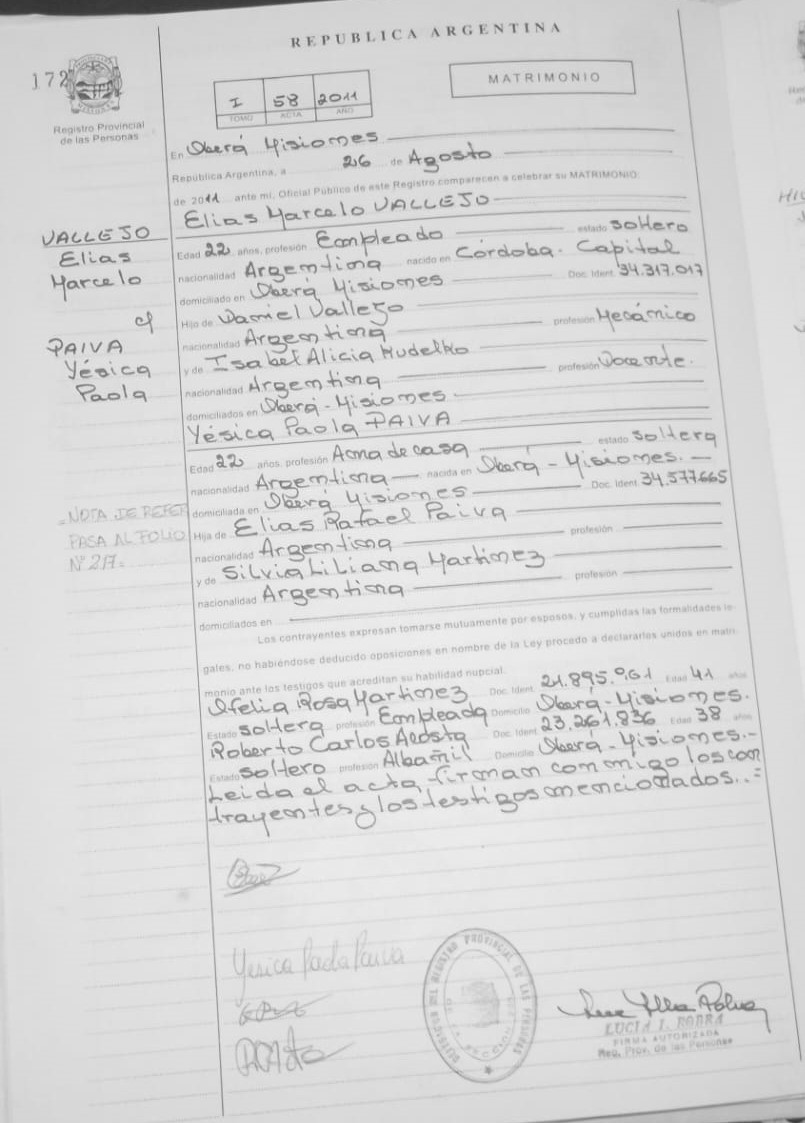 REPUBLICA ARGENTINA
172
Registro Provincial
de las Personas
I 58 2011
TOMO ACTA AÑO
MATRIMONIO
En Oberá Misiones
República Argentina, a 26 de Agosto
de 2011 ante mí, Oficial Público de este Registro comparecen a celebrar su MATRIMONIO:
Elias Marcelo VALLEJO
Edad 22 años, profesión Empleado estado soltero
nacionalidad Argentina nacido en Córdoba. Capital
domiciliado en Oberá Misiones Doc. Ident. 34.317.017
Hijo de Daniel Vallejo
nacionalidad Argentina profesión Mecánico
y de Isabel Alicia Kudelko
nacionalidad Argentina profesión Docente.
domiciliados en Oberá - Misiones
Yésica Paola PAIVA
Edad 22 años, profesión Ama de casa estado soltera
nacionalidad Argentina nacida en Oberá - Misiones. -
domiciliada en Oberá Misiones Doc. Ident. 34.577.665
Hija de Elias Rafael Paiva
nacionalidad Argentina profesión
y de Silvia Liliana Martinez
nacionalidad Argentina profesión
domiciliados en
Los contrayentes expresan tomarse mutuamente por esposos, y cumplidas las formalidades le-
gales, no habiéndose deducido oposiciones en nombre de la Ley procedo a declararlos unidos en matri-
monio ante los testigos que acreditan su habilidad nupcial.
Ofelia Rosa Martinez Doc. Ident. 21.895.961 Edad 41 años
Estado soltera profesión Empleada Domicilio Oberá - Misiones.
Roberto Carlos Acosta Doc. Ident. 23.261.836 Edad 38 años
Estado soltero profesión Albañil Domicilio Oberá - Misiones. -
Leida el acta firman conmigo los con
trayentes y los testigos mencionados..=
VALLEJO
Elias
Marcelo
c/
PAIVA
Yésica
Paola
=NOTA DE REFER
PASA AL FOLIO
Nº 217=
Yesica Paola Paiva
LUCIA I. ROBRA
FIRMA AUTORIZADA
Reg. Prov. de las Personas